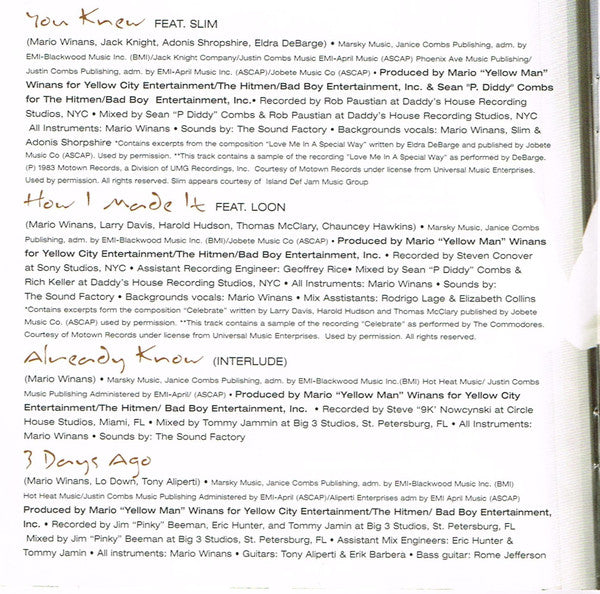 You Knew FEAT. SLIM
(Mario Winans, Jack Knight, Adonis Shropshire, Eldra DeBarge) • Marsky Music, Janice Combs Publishing, adm. by
EMI-Blackwood Music Inc. (BMI)/Jack Knight Company/Justin Combs Music EMI-April Music (ASCAP) Phoenix Ave Music Publishing/
Justin Combs Publishing, adm. by EMI-April Music Inc. (ASCAP)/Jobete Music Co (ASCAP) • Produced by Mario “Yellow Man”
Winans for Yellow City Entertainment/The Hitmen/Bad Boy Entertainment, Inc. & Sean "P. Diddy" Combs
for The Hitmen/Bad Boy Entertainment, Inc. • Recorded by Rob Paustian at Daddy’s House Recording
Studios, NYC • Mixed by Sean “P Diddy” Combs & Rob Paustian at Daddy’s House Recording Studios, NYC
All Instruments: Mario Winans • Sounds by: The Sound Factory • Backgrounds vocals: Mario Winans, Slim &
Adonis Shorpshire *Contains excerpts from the composition “Love Me In A Special Way” written by Eldra DeBarge and published by Jobete
Music Co (ASCAP). Used by permission. **This track contains a sample of the recording “Love Me In A Special Way” as performed by DeBarge.
(P) 1983 Motown Records, a Division of UMG Recordings, Inc. Courtesy of Motown Records under license from Universal Music Enterprises. Used by
permission. All rights reserved. Slim appears courtesy of Island Def Jam Music Group
How I Made It FEAT. LOON
(Mario Winans, Larry Davis, Harold Hudson, Thomas McClary, Chauncey Hawkins) • Marsky Music, Janice Combs
Publishing, adm. by EMI-Blackwood Music Inc. (BMI)/Jobete Music Co (ASCAP) • Produced by Mario “Yellow Man” Winans
for Yellow City Entertainment/The Hitmen/Bad Boy Entertainment, Inc. • Recorded by Steven Conover
at Sony Studios, NYC • Assistant Recording Engineer: Geoffrey Rice• Mixed by Sean “P Diddy” Combs &
Rich Keller at Daddy’s House Recording Studios, NYC • All Instruments: Mario Winans • Sounds by:
The Sound Factory • Backgrounds vocals: Mario Winans • Mix Asstistants: Rodrigo Lage & Elizabeth Collins
*Contains excerpts form the composition “Celebrate” written by Larry Davis, Harold Hudson and Thomas McClary published by Jobete
Music Co. (ASCAP) used by permission. • **This track contains a sample of the recording “Celebrate” as performed by The Commodores.
Courtesy of Motown Records under license from Universal Music Enterprises. Used by permission. All rights reserved.
Already Know (INTERLUDE)
(Mario Winans) • Marsky Music, Janice Combs Publishing, adm. by EMI-Blackwood Music Inc.(BMI) Hot Heat Music/ Justin Combs
Music Publishing Administered by EMI-April/ (ASCAP) • Produced by Mario “Yellow Man” Winans for Yellow City
Entertainment/The Hitmen/ Bad Boy Entertainment, Inc. • Recorded by Steve “9K’ Nowcynski at Circle
House Studios, Miami, FL • Mixed by Tommy Jammin at Big 3 Studios, St. Petersburg, FL • All Instruments:
Mario Winans • Sounds by: The Sound Factory
3 Days Ago
(Mario Winans, Lo Down, Tony Aliperti) • Marsky Music, Janice Combs Publishing, adm. by EMI-Blackwood Music Inc. (BMI)
Hot Heat Music/Justin Combs Music Publishing Administered by EMI-April (ASCAP)/Aliperti Enterprises adm by EMI April Music (ASCAP)
Produced by Mario “Yellow Man” Winans for Yellow City Entertainment/The Hitmen/ Bad Boy Entertainment,
Inc. • Recorded by Jim “Pinky” Beeman, Eric Hunter, and Tommy Jamin at Big 3 Studios, St. Petersburg, FL
Mixed by Jim “Pinky” Beeman at Big 3 Studios, St. Petersburg, FL • Assistant Mix Engineers: Eric Hunter &
Tommy Jamin • All instruments: Mario Winans • Guitars: Tony Aliperti & Erik Barbera • Bass guitar: Rome Jefferson